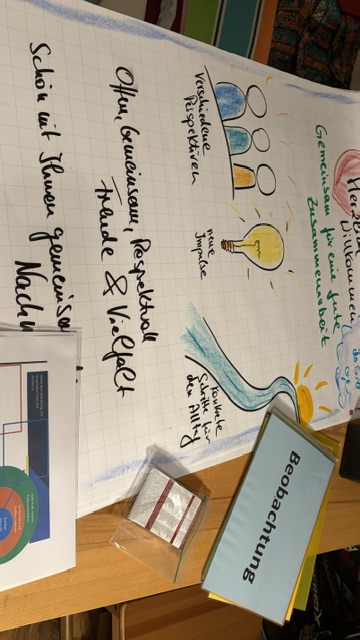 Herzlich
Willkommen
Gemeinsam für eine gute
Zusammenarbeit
Verschiedene
Perspektiven
neue
Impulse
Konkrete
Schritte für
den Alltag
Offen, Gemeinsam, Respektvoll
Freude & Vielfalt
Schön mit Ihnen gemeinsa
Nachm
Beobachtung